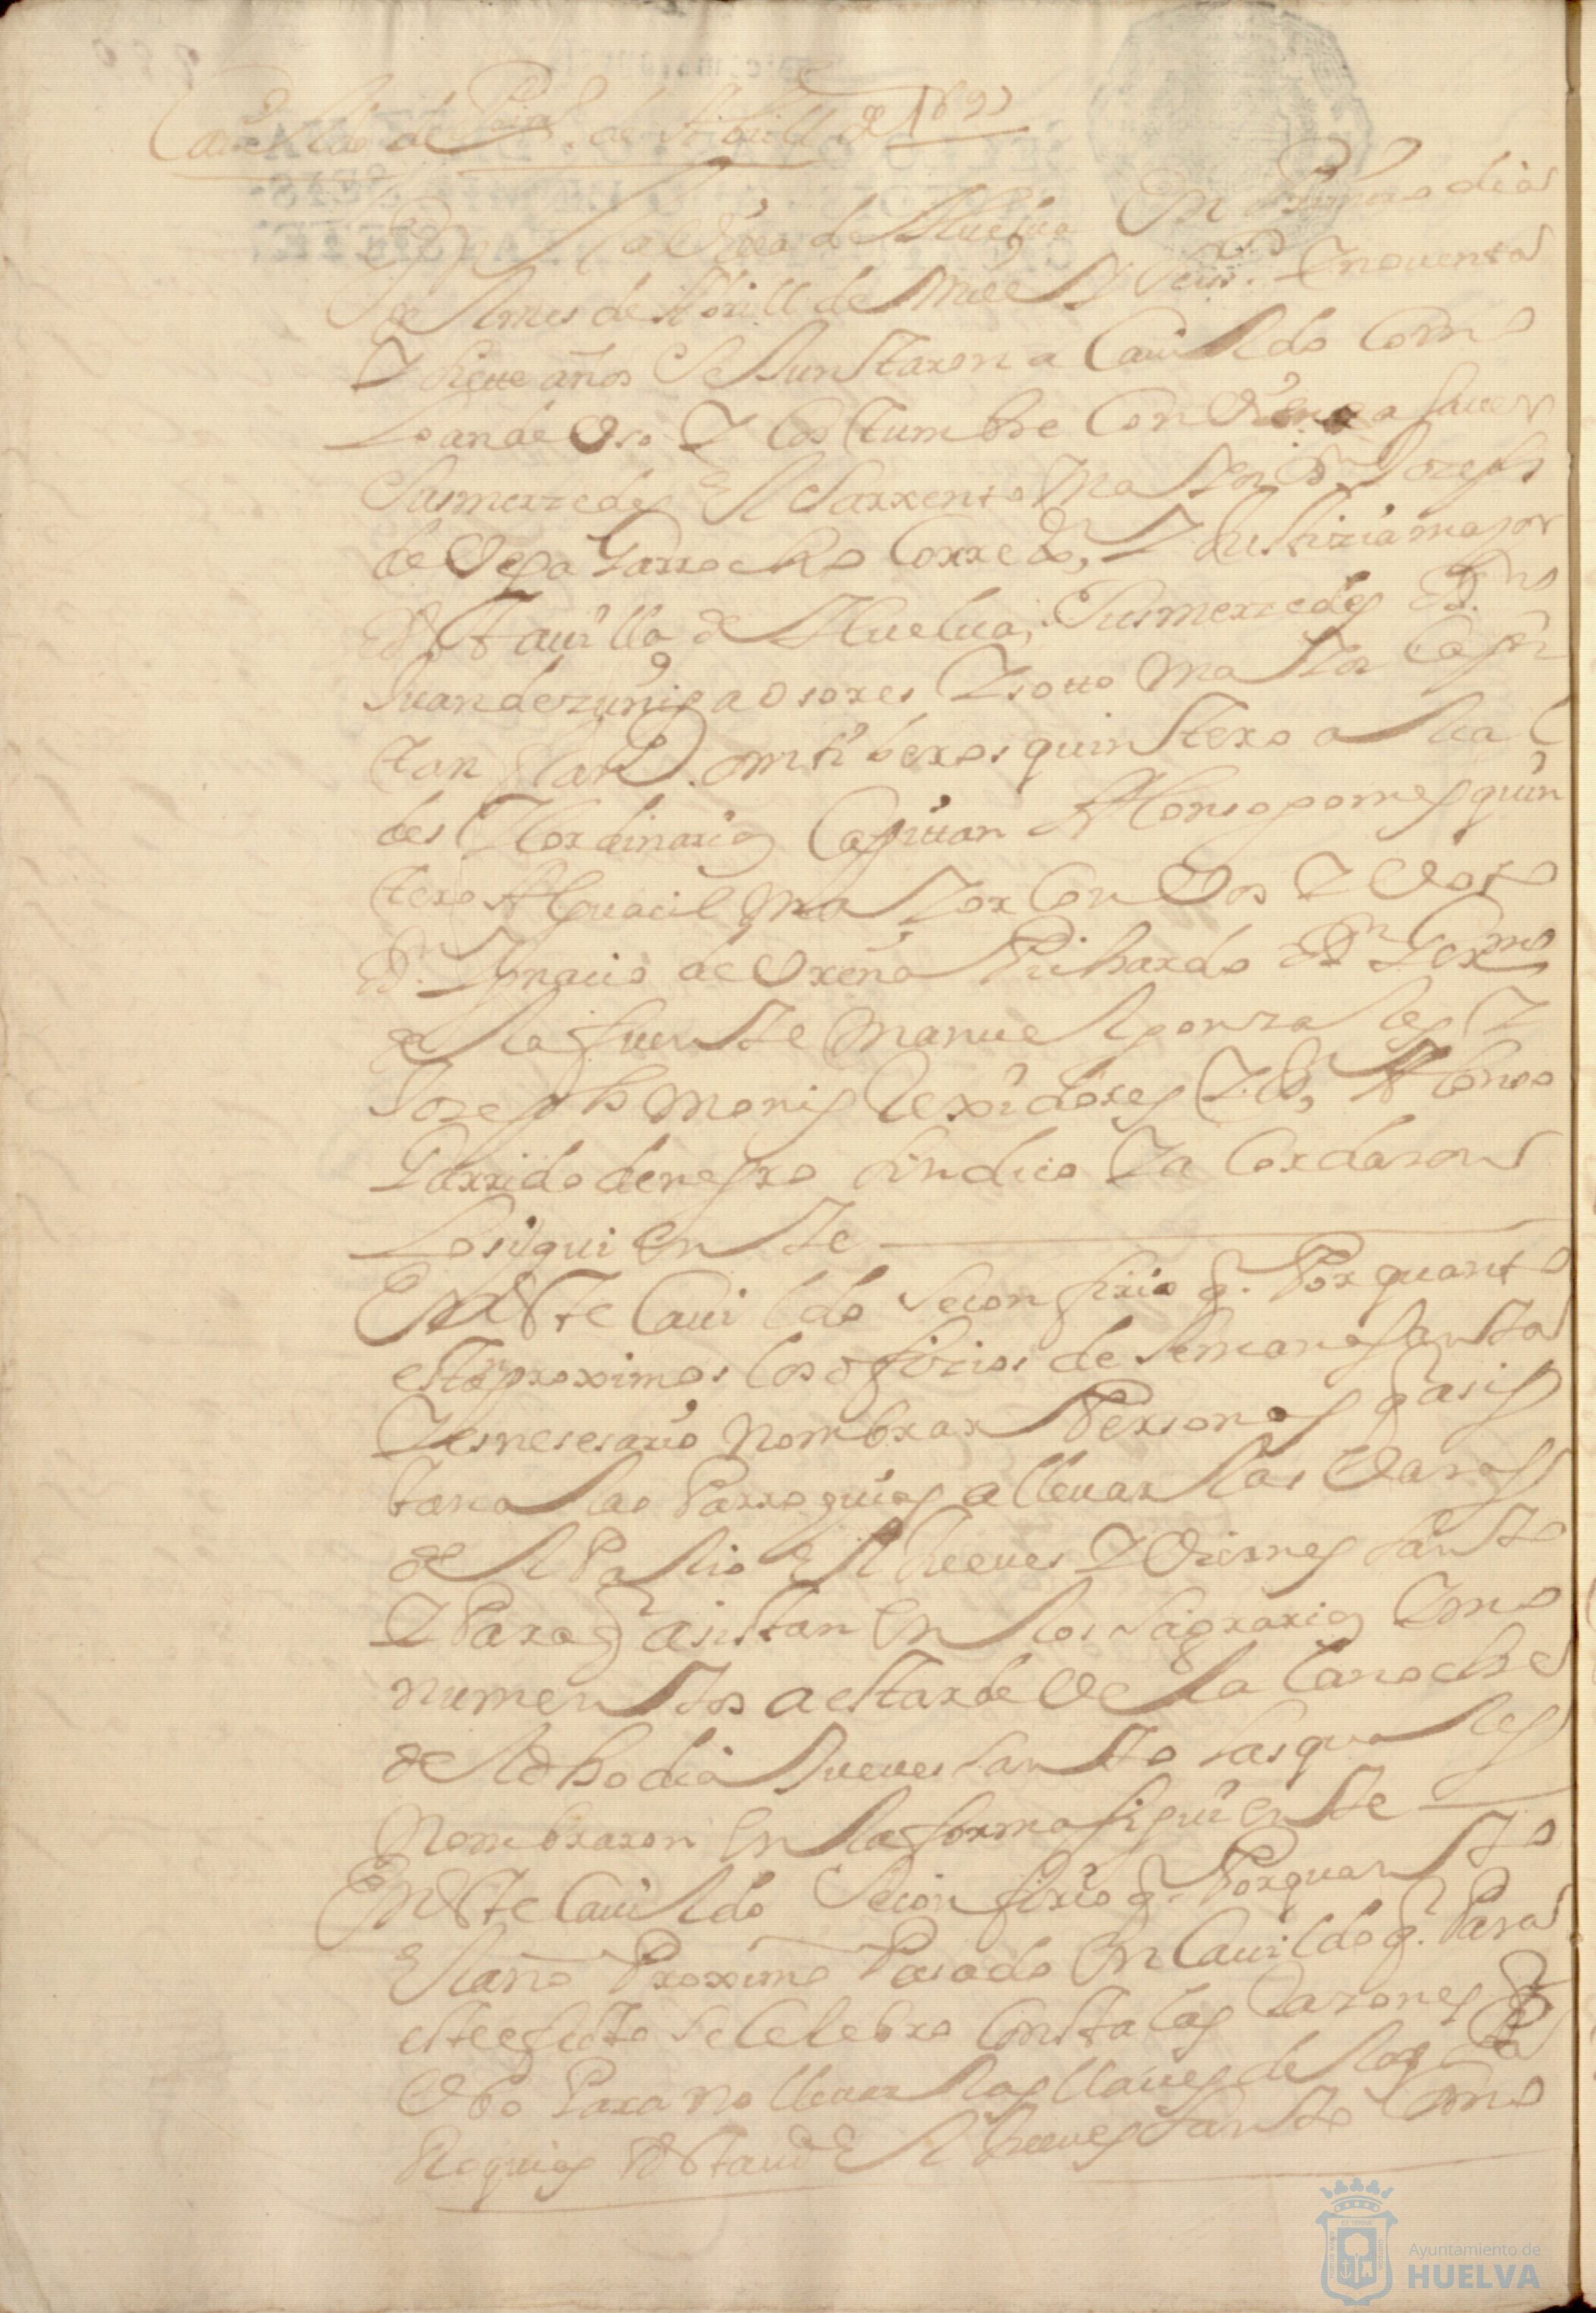 Cauildo de Prim.o de Abrill de 1697
En la Villa de Huelua En Primero dia
del mes de Abrill de mill y seis.os y nouenta
y siette años se Juntaron a Cauildo como
lo an de Uso y Costumbre Conuiene a sauer
Sus merzedes El Sarxento Maior Dn Joseph
de Vega Garrocho Corre.or y Justizia maior
desta uilla de Huelua, Sus merzedes Dn
Juan de zuñiga osores y sotto Maior Capi
tan Bar.me ontiberos quintero alcal
des hordinarios Capittan Alonso gomes quin
tero Alguacil Maior Con Vos y Voto
Dn Ygnacio de Vreña Pichardo Dn Germo
de la fuente Manuel gonzales y
Joseph monis Rexidores y Dn Alonso
Garrido de negro sindico y acordaron
lo siguiente
En este Cauildo se confirio q. Por quanto
estan proximos los ofizios de semana santa
y es nesesario nombrar Personas q asis
tan a las Parroquias a lleuar las Varas
del Palio El Jueues y Viernes santo
y Para q asistan en los sagrarios y mo
numentos a estar de Vela la noche
del dho dia Jueues santo las quales
Nombraron en la forma siguiente
En este Cauildo se confirio q. Por quanto
El año Proximo Pasado En Cauildo q. Para
este efecto se Celebro Constalas Razones q
Vbo Para no lleuar las llaues de las Pa
Roquias desta ud El Jueues santo Como
Ayuntamiento de
HUELVA